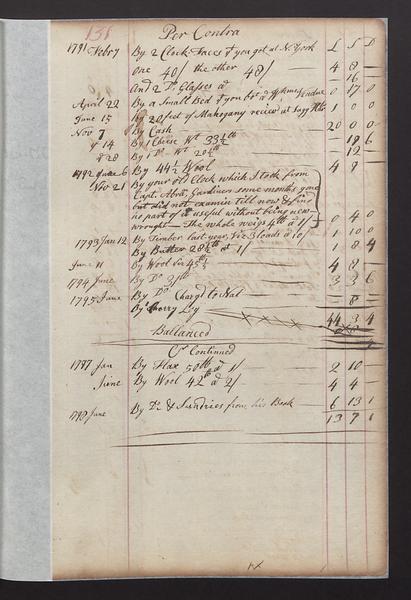 138 Per Contra
1791 Febry By 2 Clock Faces & you got at N. York £ S D
One 40/ the other 48/ 4 8 —
And 2 Do. Glasses a — 16 —
April 22 By a Small Bed & you bot. a Vendue 0 17 0
June 15 By 20 feet of Mahogany reciev'd at Sagg Hb. 1 0 0
Nov 7 By Cash 20 0 0
of 14 By Cheese Wt. 33½ lb — 18 6
& 28 By Do. Wt. 20 lb — 12 —
1792 By 44½ Wool 4 8
Nov 21 By your old Clock which I took from
Capt. Abrm. Gardiners some months gone
but did not examin till now & find
no part of it useful without being new
wrought — The whole weigs 4 lb a 1/ 0 4 0
1793 Jan 12 By Timber last year, Viz 3 loads a 10/ 1 10 0
By Butter 28½ lb a 1/ 8 4
June 11 By Wool 4 8 —
1794 June By Do. 3 3 6
1795 June By Do. Charg'd to Nat — 8 —
By Cherry Log
44 3 4
Ballanced
Cr. Continued
1797 Jan By Flax 50 lb a 1/ 2 10
June By Wool 42 lb a 2/ 4 4 —
June By Do. & Sundries from his Book 6 13 1
13 7 1